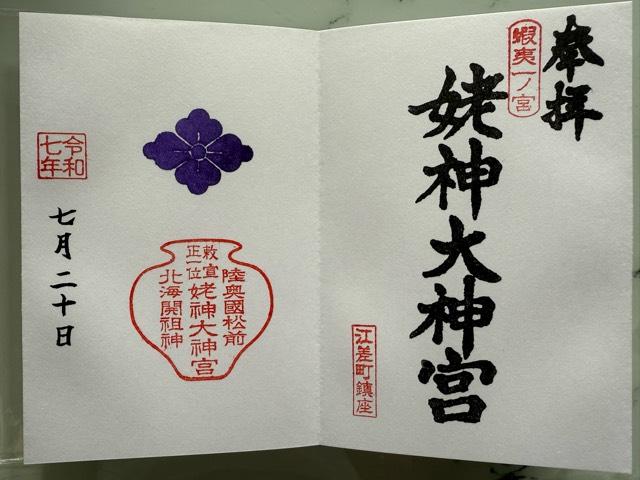 奉拝
蝦夷一ノ宮
姥神大神宮
江差町鎮座
陸奥國松前
敕宣
正一位
姥神大神宮
北海開祖神
令和
七年
七月二十日